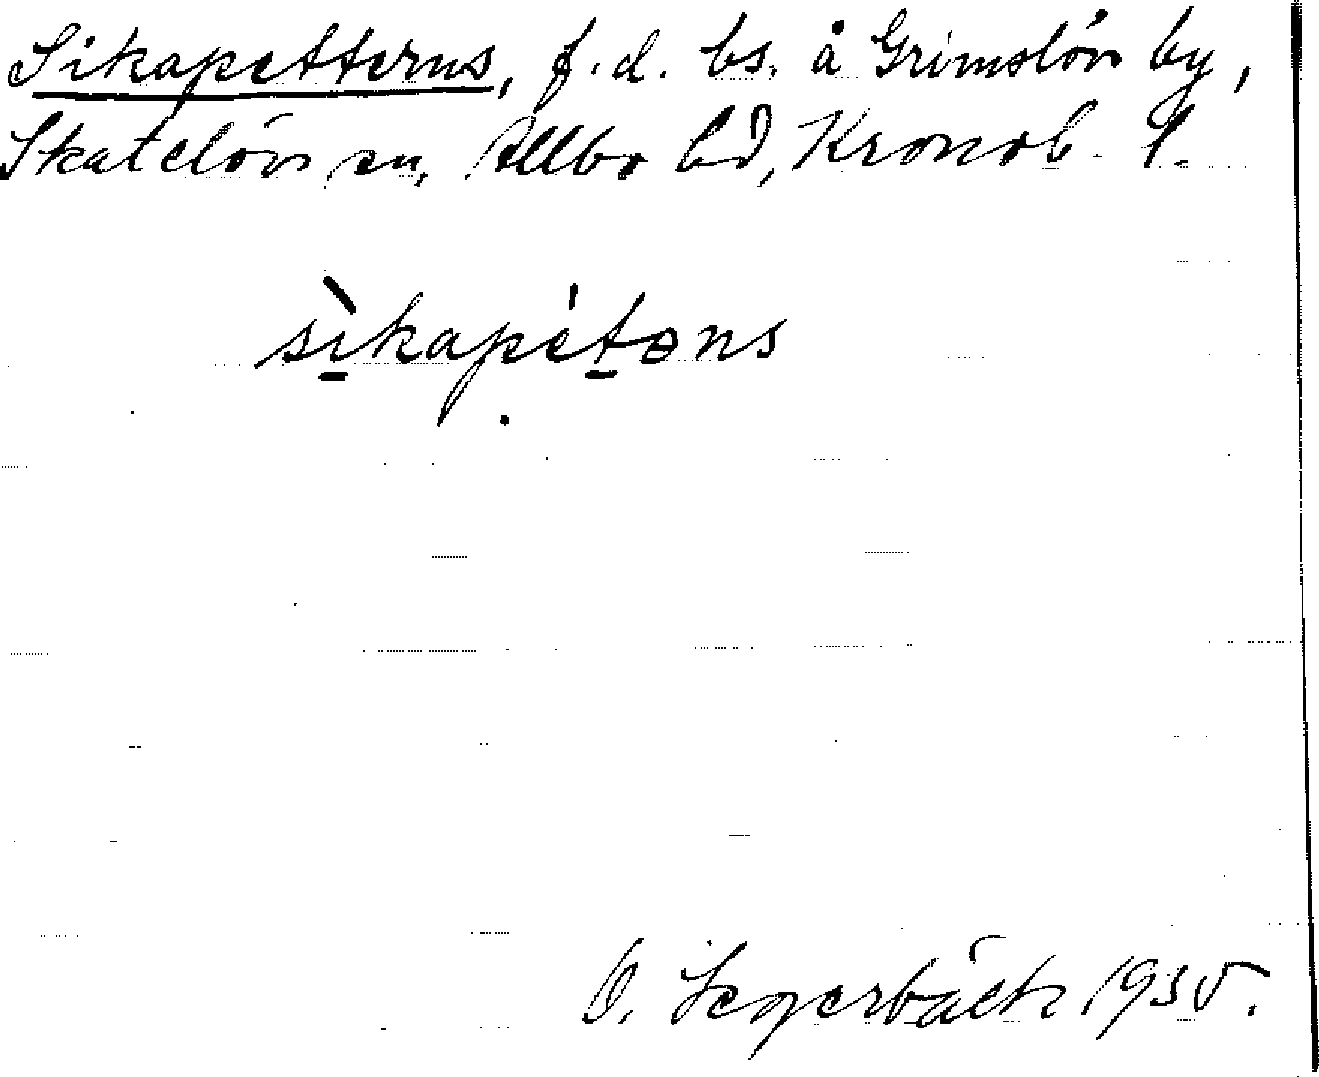 Sikapetterns, f.d. bs. å Grimslöv by,
Skatelöv sn, Allbo hd, Kronob. l.
sìkapétəns
O. Segerbäck 1935.